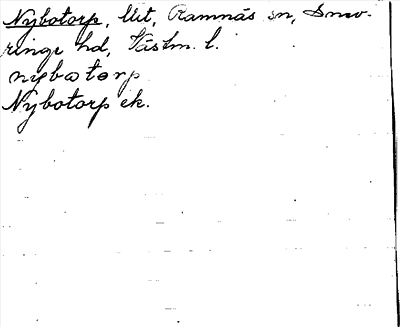 Nybotorp, Utt, Ramnäs sn, Snev-
ringe hd, Västm. l.
nybotorp
Nybotorp ek.